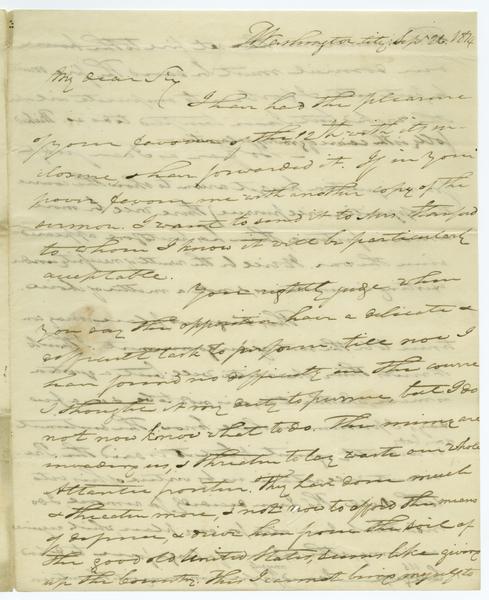 Washington city Sept 26. 1814
My dear Sir
I have had the pleasure
of your favour of the 12th with its in-
closure & have forwarded it. If in your
power favour me with another copy of the
sermon. I want to send it to Mrs.
to whom I know it will be particularly
acceptable.
You rightly judge when
you say the opposition have a delicate &
difficult task to perform till now I
have found no difficulty in the course
I thought it my duty to pursue, but I do
not now know what to do. The enemy are
invading us, & threaten to lay waste our whole
Atlantic frontier. They have done much
& threaten more, & not now to afford the means
of defence, & drive him from the soil of
the good old United States, seems like giving
up the Country. This I cannot bring myself to